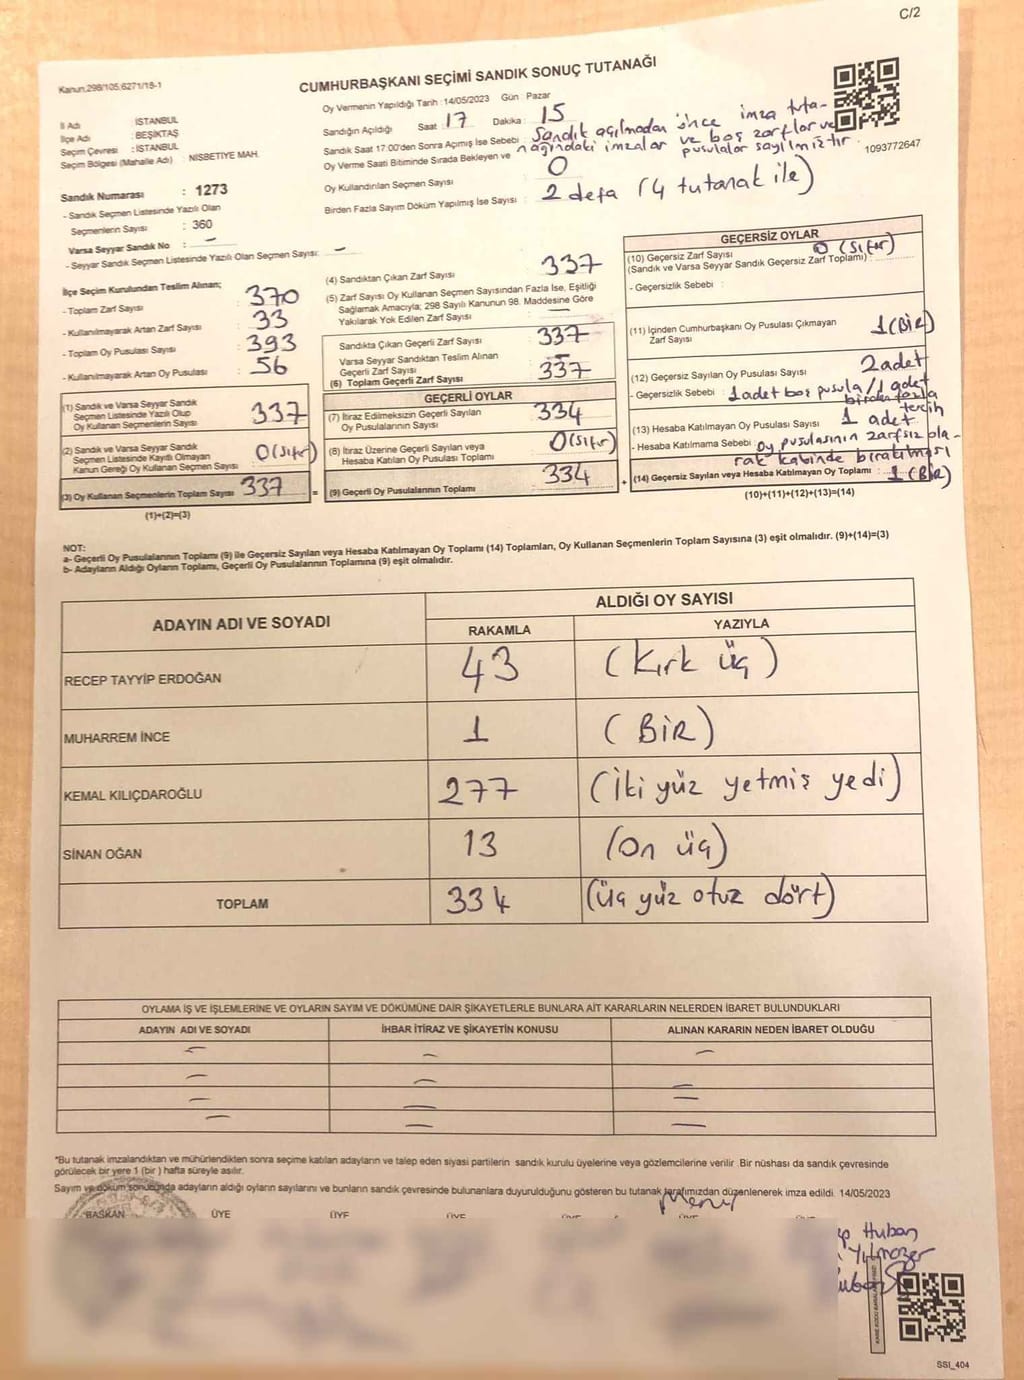 C/2
Kanun,298/105,6271/18-1
CUMHURBAŞKANI SEÇİMİ SANDIK SONUÇ TUTANAĞI
İl Adı : İSTANBUL
İlçe Adı : BEŞİKTAŞ
Seçim Çevresi : İSTANBUL
Seçim Bölgesi (Mahalle Adı) : NİSBETİYE MAH.
Oy Vermenin Yapıldığı Tarih :14/05/2023 Gün : Pazar
Sandığın Açıldığı Saat : 17 Dakika : 15
Sandık Saat 17:00'den Sonra Açımış İse Sebebi : Sandık açılmadan önce imza tuta-
nağındaki imzalar ve boş zarflar ve
pusulalar sayılmıştır.
1093772647
Oy Verme Saati Bitiminde Sırada Bekleyen ve
Oy Kullandırılan Seçmen Sayısı : 0
Birden Fazla Sayım Döküm Yapılmış İse Sayısı : 2 defa (4 tutanak ile)
Sandık Numarası : 1273
- Sandık Seçmen Listesinde Yazılı Olan
Seçmenlerin Sayısı : 360
Varsa Seyyar Sandık No : -
- Seyyar Sandık Seçmen Listesinde Yazılı Olan Seçmen Sayısı: -
İlçe Seçim Kurulundan Teslim Alınan;
- Toplam Zarf Sayısı : 370
- Kullanılmayarak Artan Zarf Sayısı : 33
- Toplam Oy Pusulası Sayısı : 393
- Kullanılmayarak Artan Oy Pusulası : 56
(1) Sandık ve Varsa Seyyar Sandık
Seçmen Listesinde Yazılı Olup
Oy Kullanan Seçmenlerin Sayısı : 337
(2) Sandık ve Varsa Seyyar Sandık
Seçmen Listesinde Kayıtlı Olmayan
Kanun Gereği Oy Kullanan Seçmen Sayısı : 0(Sıfır)
(3) Oy Kullanan Seçmenlerin Toplam Sayısı : 337 =
(1)+(2)=(3)
(4) Sandıktan Çıkan Zarf Sayısı : 337
(5) Zarf Sayısı Oy Kullanan Seçmen Sayısından Fazla İse, Eşitliği
Sağlamak Amacıyla; 298 Sayılı Kanunun 98. Maddesine Göre
Yakılarak Yok Edilen Zarf Sayısı : -
Sandıkta Çıkan Geçerli Zarf Sayısı : 337
Varsa Seyyar Sandıktan Teslim Alınan
Geçerli Zarf Sayısı : -
(6) Toplam Geçerli Zarf Sayısı : 337
GEÇERLİ OYLAR
(7) İtiraz Edilmeksizin Geçerli Sayılan
Oy Pusulalarının Sayısı : 334
(8) İtiraz Üzerine Geçerli Sayılan veya
Hesaba Katılan Oy Pusulası Toplamı : 0(Sıfır)
(9) Geçerli Oy Pusulalarının Toplamı : 334 +
GEÇERSİZ OYLAR
(10) Geçersiz Zarf Sayısı 0 (Sıfır)
(Sandık ve Varsa Seyyar Sandık Geçersiz Zarf Toplamı) :
- Geçersizlik Sebebi :
(11) İçinden Cumhurbaşkanı Oy Pusulası Çıkmayan
Zarf Sayısı : 1(BİR)
(12) Geçersiz Sayılan Oy Pusulası Sayısı : 2 adet
- Geçersizlik Sebebi : 1 adet boş pusula/1 adet
birden fazla
tercih
(13) Hesaba Katılmayan Oy Pusulası Sayısı : 1 adet
- Hesaba Katılmama Sebebi : oy pusulasının zarfsız ola-
rak kabinde bırakılması
(14) Geçersiz Sayılan veya Hesaba Katılmayan Oy Toplamı : 1 (BİR)
(10)+(11)+(12)+(13)=(14)
NOT:
a- Geçerli Oy Pusulalarının Toplamı (9) ile Geçersiz Sayılan veya Hesaba Katılmayan Oy Toplamı (14) Toplamları, Oy Kullanan Seçmenlerin Toplam Sayısına (3) eşit olmalıdır. (9)+(14)=(3)
b- Adayların Aldığı Oyların Toplamı, Geçerli Oy Pusulalarının Toplamına (9) eşit olmalıdır.
ADAYIN ADI VE SOYADI ALDIĞI OY SAYISI
RAKAMLA YAZIYLA
RECEP TAYYİP ERDOĞAN 43 (Kırk üç)
MUHARREM İNCE 1 (BİR)
KEMAL KILIÇDAROĞLU 277 (İki yüz yetmiş yedi)
SİNAN OĞAN 13 (On üç)
TOPLAM 334 (üç yüz otuz dört)
OYLAMA İŞ VE İŞLEMLERİNE VE OYLARIN SAYIM VE DÖKÜMÜNE DAİR ŞİKAYETLERLE BUNLARA AİT KARARLARIN NELERDEN İBARET BULUNDUKLARI
ADAYIN ADI VE SOYADI İHBAR İTİRAZ VE ŞİKAYETİN KONUSU ALINAN KARARIN NEDEN İBARET OLDUĞU
*Bu tutanak imzalandıktan ve mühürlendikten sonra seçime katılan adayların ve talep eden siyasi partilerin sandık kurulu üyelerine veya gözlemcilerine verilir. Bir nüshası da sandık çevresinde
görülecek bir yere 1 (bir ) hafta süreyle asılır.
Sayım ve döküm sonucunda adayların aldığı oyların sayılarını ve bunların sandık çevresinde bulunanlara duyurulduğunu gösteren bu tutanak tarafımızdan düzenlenerek imza edildi. 14/05/2023
BAŞKAN ÜYE ÜYE ÜYE ÜYE ÜYE ÜYE
Huban
Yılmazer
SSI_404